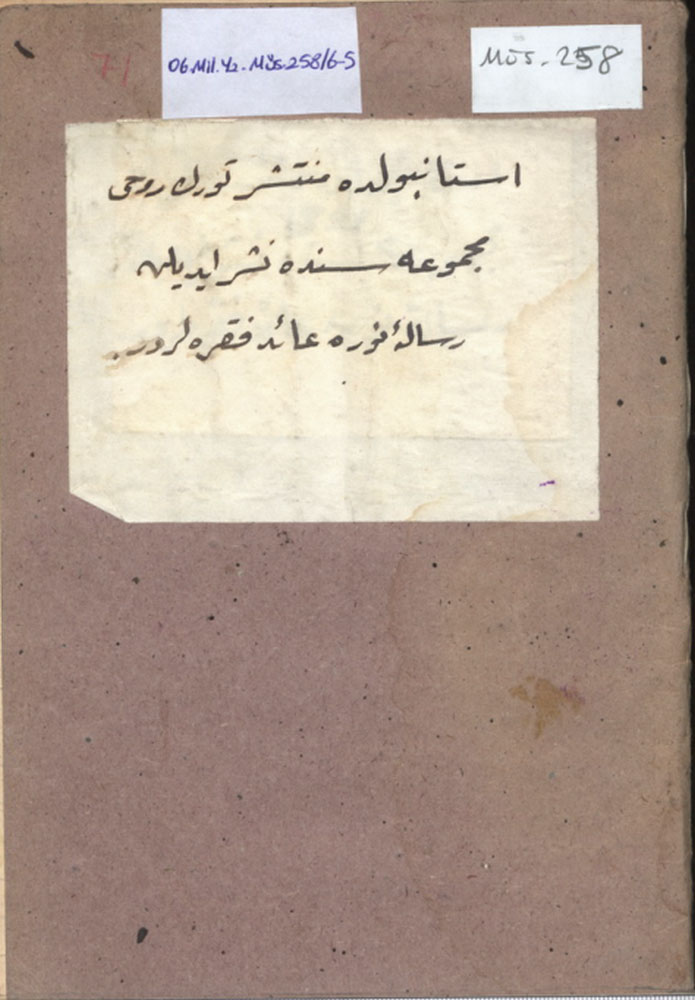 71
06.Mil.Yz.Müs.258/6-5
Müs-258
استانبولده منتشر تورك روحى
مجموعه سنده نشر ايديلن
رسالهٔ نوره عائد فقره لردر.